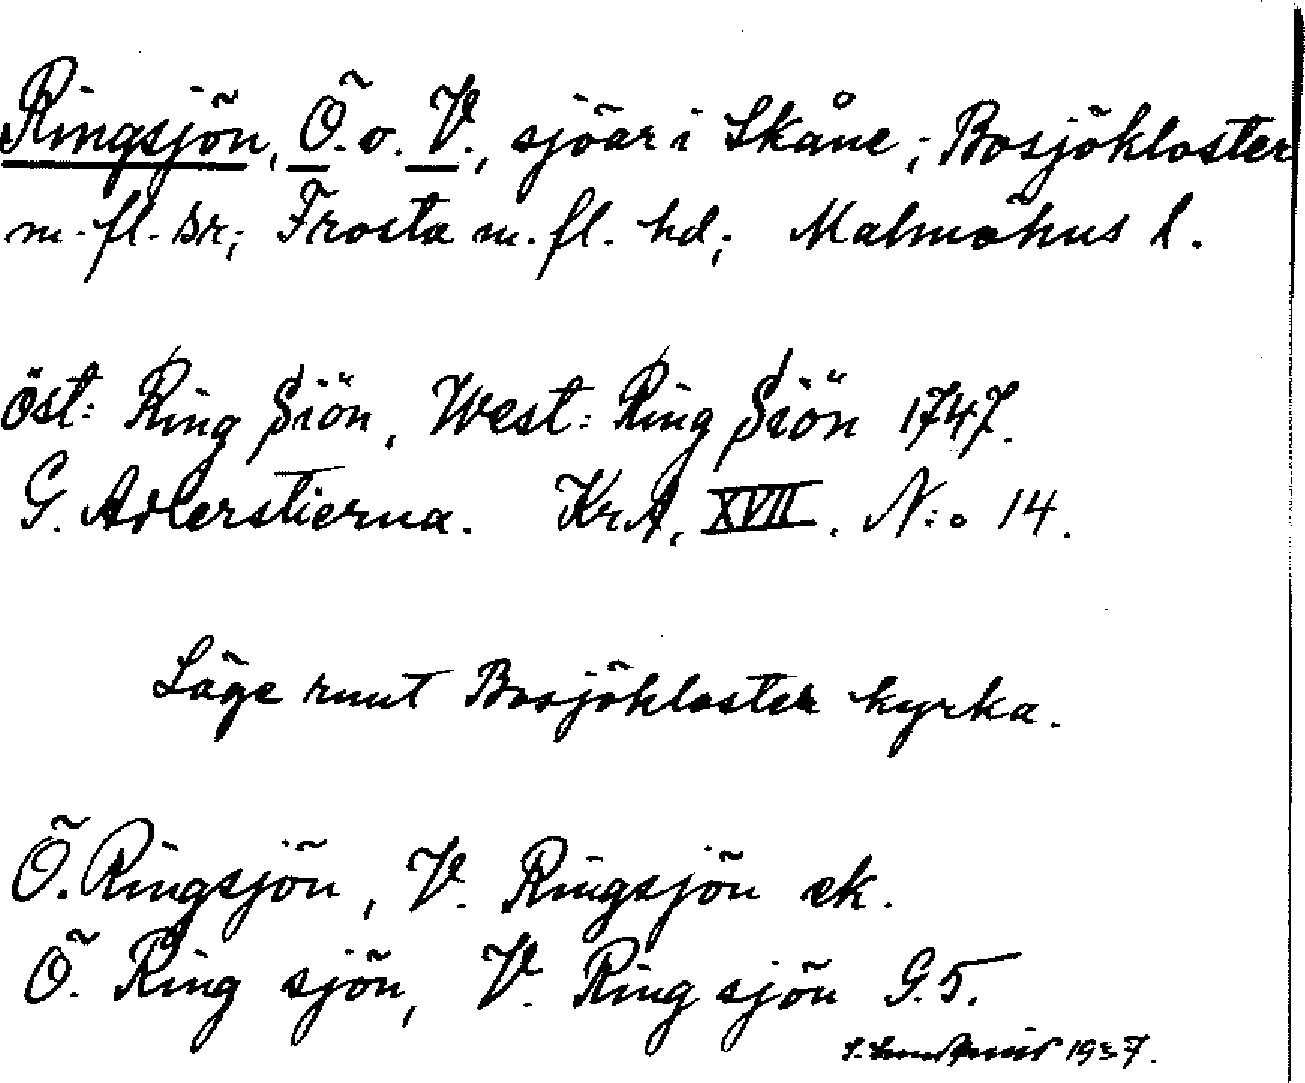 Ringsjön, Ö. o. V., sjöar i Skåne; Bosjökloster
m. fl. snr; Frosta m. fl. hd; Malmöhus l.
öst: Ring Siön, West: Ring Siön 1747.
G. Adlerstierna. KrA, XVII. N:o 14.
Läge runt Bosjökloster kyrka.
Ö. Ringsjön, V. Ringsjön ek.
Ö. Ring sjön, V. Ring sjön G.5.
1937.